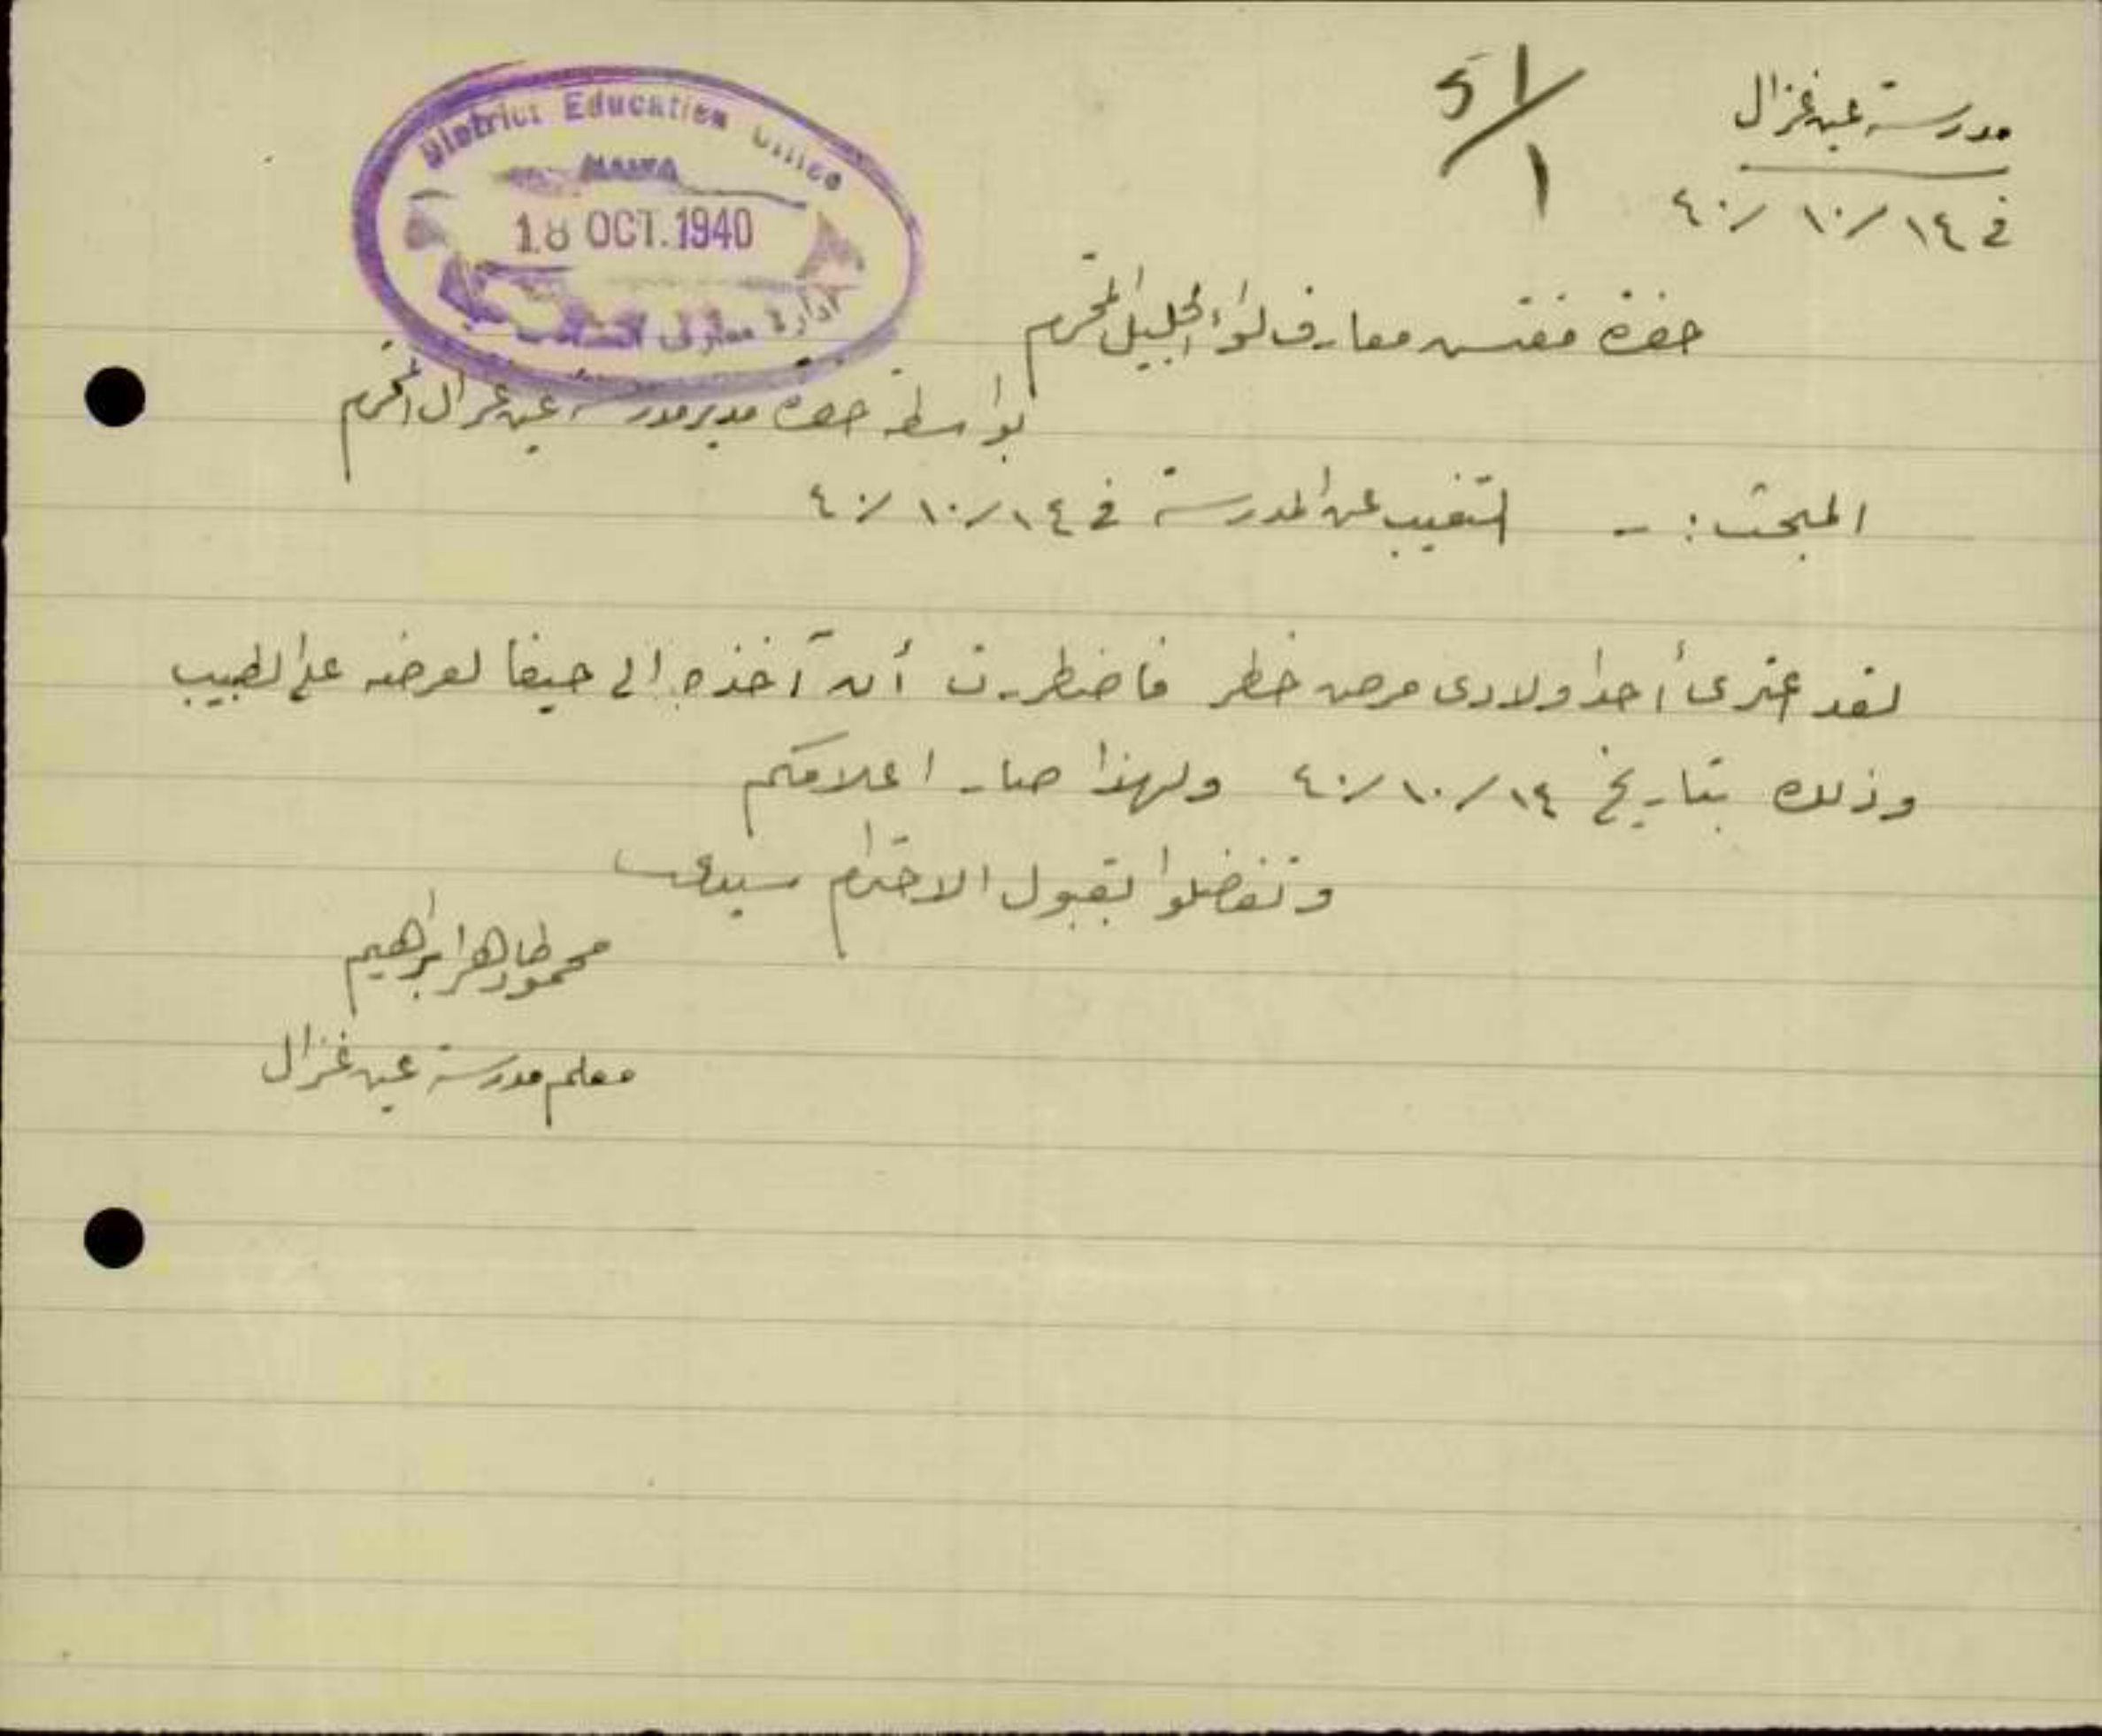 مدرسة عين غزال
51/1
في ١٤/١٠/٤٠
District Education Office
HAIFA
18 OCT. 1940
ادارة معارف
حضرة مفتش معارف لواء الجليل المحترم
بواسطة حضرة مدير مدرسة عين غزال المحترم
المبحث :- التغيب عن المدرسة في ١٤/١٠/٤٠
لقد اعترى أحد اولادي مرض خطر فاضطررت أن آخذه الى حيفا لعرضه على الطبيب
وذلك بتاريخ ١٤/١٠/٤٠ ولهذا صار اعلامكم
وتفضلوا بقبول الاحترام سيدي
محمود طاهر ابراهيم
معلم مدرسة عين غزال